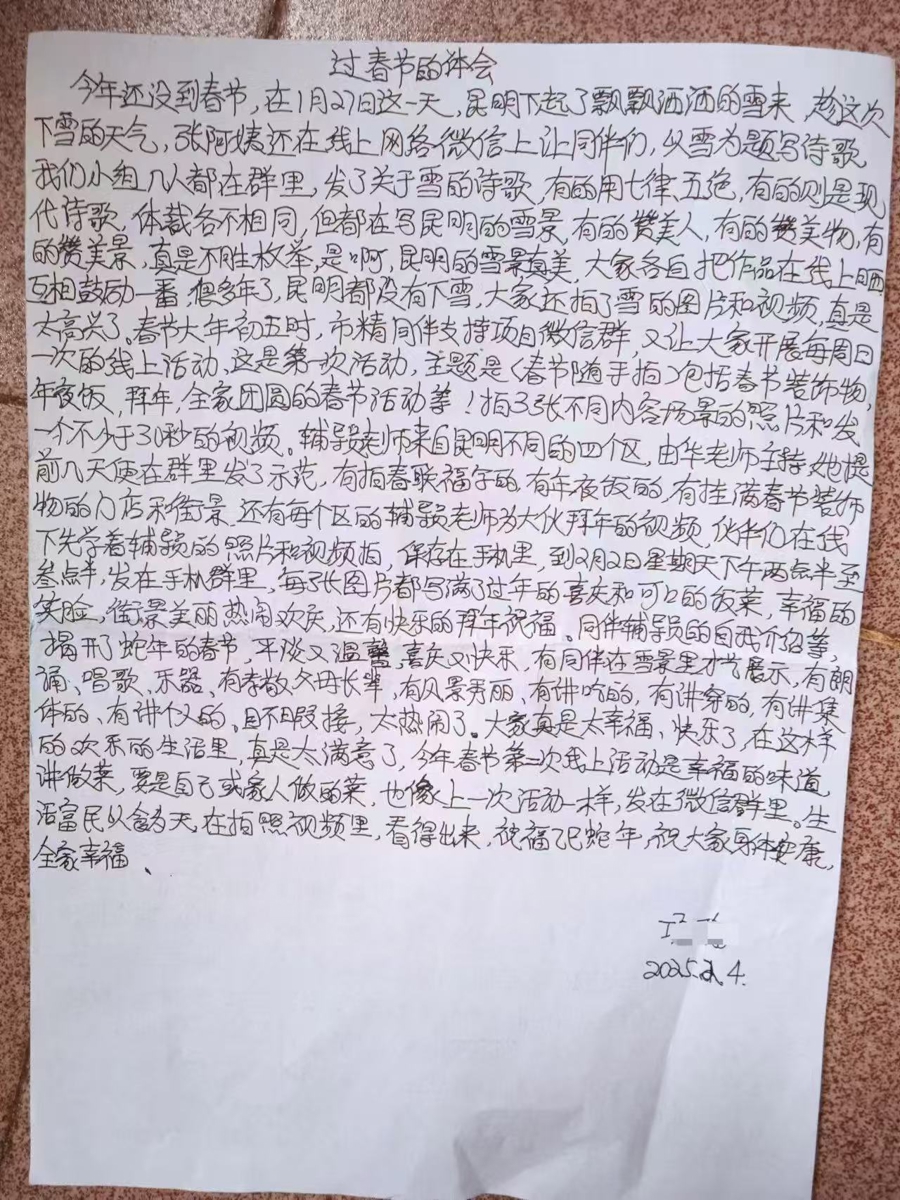 过春节的体会
今年还没到春节,在1月27日这一天,昆明下起了飘飘洒洒的雪来,趁这次
下雪的天气,张阿姨还在线上网络微信上让同伴们,以雪为题写诗歌
我们小组几人都在群里,发了关于雪的诗歌,有的用七律、五绝,有的则是现
代诗歌,体裁各不相同,但都在写昆明的雪景,有的赞美人,有的赞美物,有
的赞美景,真是不胜枚举,是啊,昆明的雪景真美,大家各自把作品在线上晒
互相鼓励一番,很多年了,昆明都没有下雪,大家还拍了雪的图片和视频,真是
太高兴了。春节大年初五时,市精同伴支持项目微信群,又让大家开展每周日
一次的线上活动,这是第一次活动,主题是〈春节随手拍〉包括春节装饰物,
年夜饭,拜年,全家团圆的春节活动等!拍3张不同内容场景的照片和发
一个不少于30秒的视频。辅导老师来自昆明不同的四个区,由华老师主持,她提
前几天便在群里发了示范,有拍春联福字的,有年夜饭的,有挂满春节装饰
物的门店和街景,还有每个区的辅导老师为大伙拜年的视频,伙伴们在线
下先学着辅导的照片和视频拍,保存在手机里,到2月2日星期天下午两点半至
叁点半,发在手机群里,每张图片都写满了过年的喜庆和可口的饭菜,幸福的
笑脸,街景美丽热闹欢庆,还有快乐的拜年祝福。同伴辅导员的自我介绍等,
揭开了蛇年的春节,平淡又温馨,喜庆又快乐,有同伴在雪景里才艺展示,有朗
诵、唱歌、乐器、有孝敬父母长辈,有风景秀丽、有讲吃的,有讲穿的,有讲集
体的、有讲个人的、目不暇接,太热闹了。大家真是太幸福、快乐了,在这样
的欢乐的生活里,真是太满意了,今年春节第二次线上活动是幸福的味道
讲做菜,要是自己或家人做的菜,也像上一次活动一样,发在微信群里。生
活富民以食为天,在拍照视频里,看得出来,祝福乙巳蛇年,祝大家身体安康,
全家幸福、
2025.2.4.